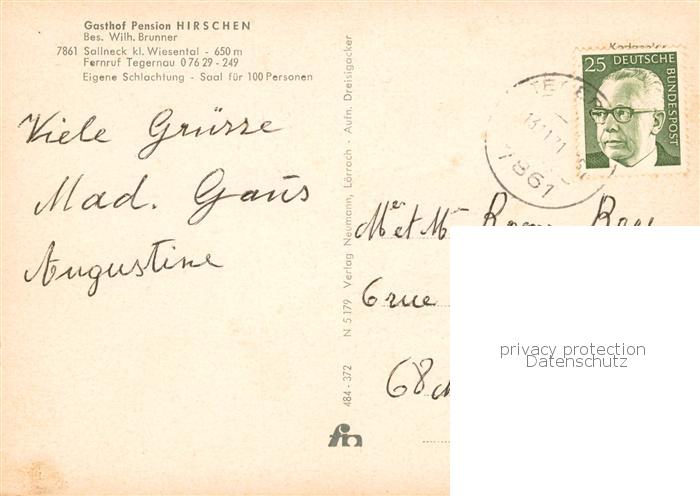 Gasthof Pension HIRSCHEN
Bes. Wilh. Brunner
7861 Sallneck kl. Wiesental - 650 m
Fernruf Tegernau 0 76 29 - 249
Eigene Schlachtung - Saal für 100 Personen
Viele Grüsse
Mad. Gaus
Augustine
484 - 372 N 5179 Verlag Neumann, Lörrach - Aufn. Dreisigacker
25 DEUTSCHE BUNDESPOST
7861
Mer et Mme
6 rue
68
privacy protection
Datenschutz